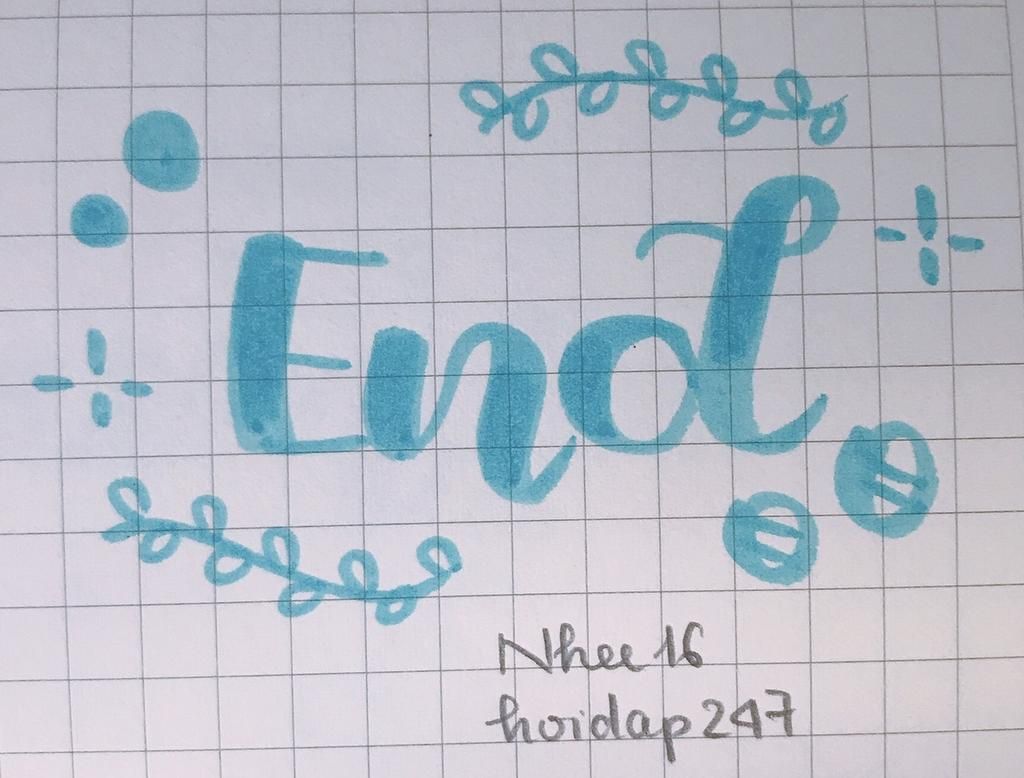 End
Nhee 16
hoidap247